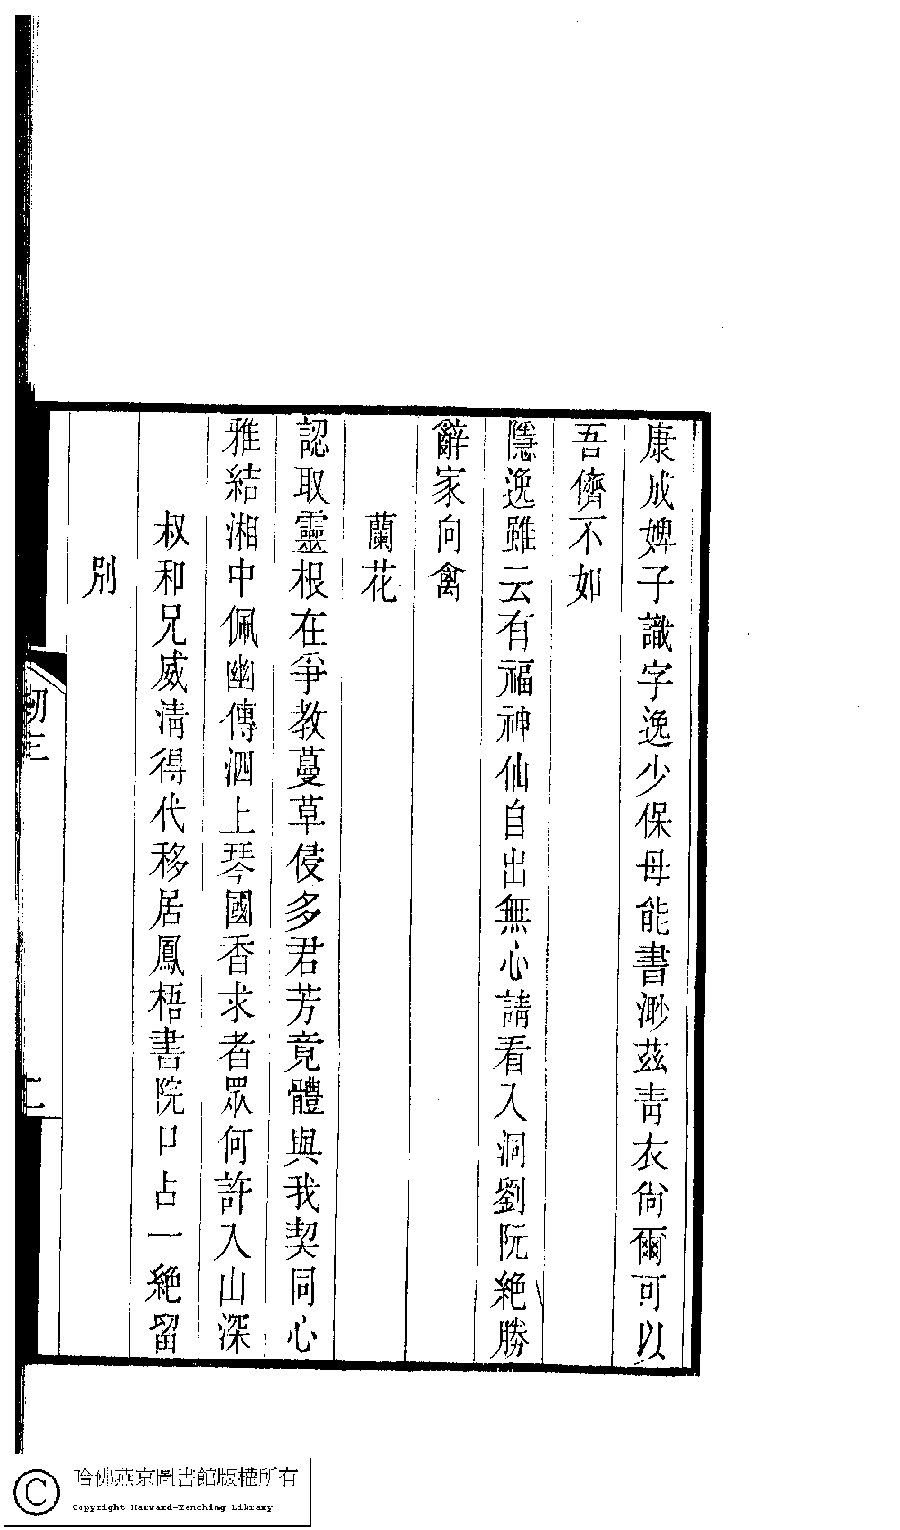 康成婢子識字逸少保母能書渺茲青衣尙爾可以
吾儕不如
隱逸雖云有福神仙自出無心請看入洞劉阮絶勝
辭家向禽
蘭花
認取靈根在爭教蔓草侵多君芳竟體與我契同心
雅結湘中佩幽傳泗上琴國香求者眾何許入山深
叔和兄威清得代移居鳳梧書院口占一絶留
別
哈佛燕京圖書館版權所有
Copyright Harvard-Yenching Library